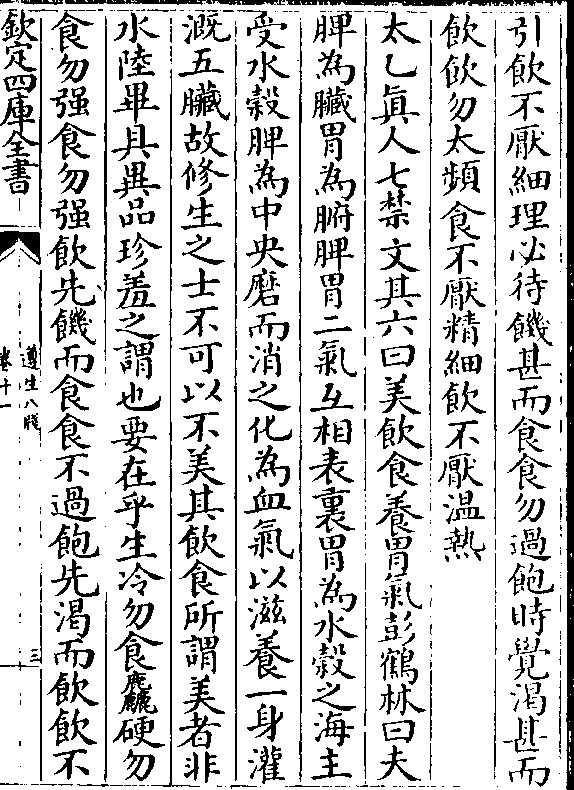 引飲不厭細理必待饑甚而食食勿過飽時覺渴甚而
飲飲勿太頻食不厭精細飲不厭温熱
太乙真人七禁文其六曰美飲食養胃氣彭鶴林曰夫
脾為臟胃為腑脾胃二氣互相表裏胃為水榖之海主
受水榖脾為中央磨而消之化為血氣以滋養一身灌
溉五臟故修生之士不可以不美其飲食所謂美者非
水陸畢具異品珍羞之謂也要在乎生冷勿食麤硬勿
食勿强食勿强飲先饑而食食不過飽先渴而飲飲不
欽定四庫全書
遵生八牋
卷十一
三